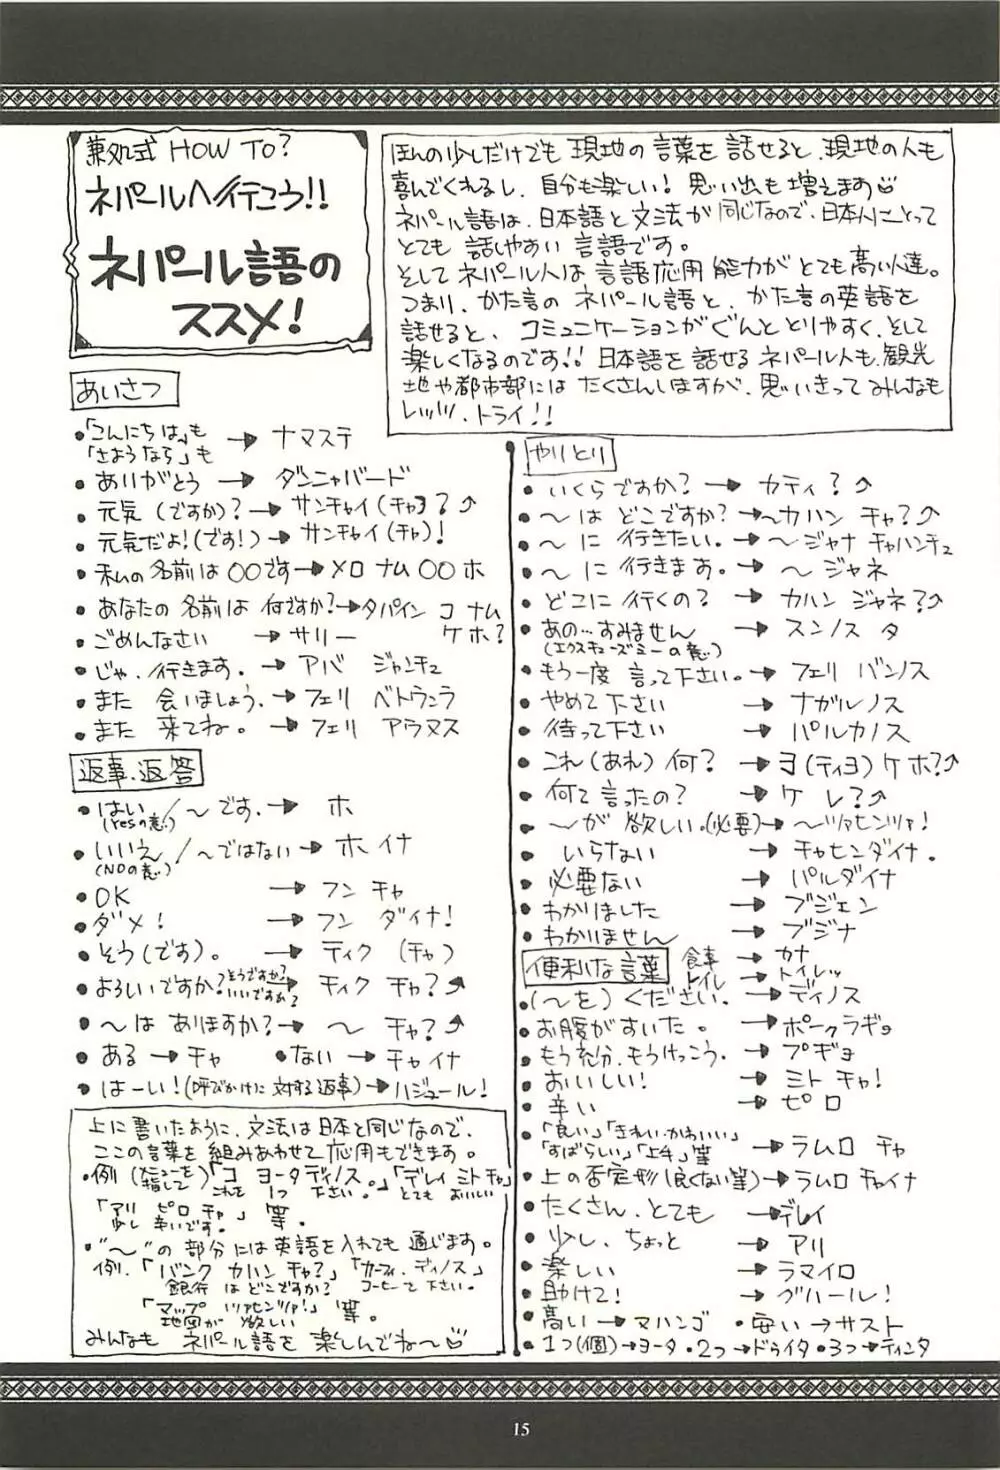 兼処式 HOW TO?
ネパールへ行こう!!
ネパール語の
ススメ!
ほんの少しだけでも現地の言葉を話せると、現地の人も
喜んでくれるし、自分も楽しい! 思い出も増えます
ネパール語は、日本語と文法が同じなので、日本人にとって
とても話しやすい言語です。
そしてネパール人は言語応用能力がとても高い人達。
つまり、かた言のネパール語と、かた言の英語を
話せると、コミュニケーションがぐんととりやすく、そして
楽しくなるのです!! 日本語を話せるネパール人も、観光
地や都市部にはたくさんいますが、思いきってみんなも
レッツ、トライ!!
あいさつ
・「こんにちは」も
「さようなら」も → ナマステ
・ありがとう → ダンニャバード
・元気(ですか)? → サンチャイ(チャ)?↗
・元気だよ!(です!) → サンチャイ(チャ)!
・私の名前は〇〇です → メロ ナム 〇〇 ホ
・あなたの名前は何ですか? → タパイン コ ナム
ケ ホ?
・ごめんなさい → サリー
・じゃ、行きます。 → アバ ジャンチュ
・また 会いましょう。 → フェリ ベトウンラ
・また 来てね。 → フェリ アウヌス
返事、返答
・はい。/〜です。 → ホ
(Yesの意)
・いいえ/〜ではない → ホイナ
(NOの意)
・OK → フン チャ
・ダメ! → フン ダイナ!
・そう(です)。 → ティク (チャ)
・よろしいですか? そうですか? いいですか? → ティク チャ?↗
・〜は ありますか? → 〜 チャ?↗
・ある → チャ ・ない → チャイナ
・はーい!(呼びかけに対する返事) → ハジュール!
上に書いたように、文法は日本と同じなので、
ここの言葉を組みあわせて応用もできます。
・例(メニューを指して)「コ ヨータ ディノス。」「デレイ ミト チャ」
これを 1つ 下さい。 とても おいしい
「アリ ピロ チャ」 等。
少し 辛いです。
・"〜"の部分には英語を入れても通じます。
例.「バンク カハン チャ?」「カーフィ、ディノス」
銀行 は どこですか? コーヒー 下さい。
「マップ ツァヒンツァ!」 等。
地図が 欲しい
みんなも ネパール語を楽しんでね〜
やりとり
・いくらですか? → カティ?↗
・〜は どこですか? → 〜カハン チャ?↗
・〜に 行きたい。 → 〜ジャナ チャハンチュ
・〜に 行きます。 → 〜ジャネ
・どこに行くの? → カハン ジャネ?↗
・あの…すみません → スンノス タ
(エクスキューズミーの意)
・もう一度 言って下さい。 → フェリ バンノス
・やめて下さい → ナガルノス
・待って下さい → パルカノス
・これ(あれ)何? → ヨ(ティヨ)ケ ホ?↗
・何て言ったの? → ケ レ?↗
・〜が 欲しい。(必要) → 〜ツァヒンツァ!
・いらない → チャヒンダイナ。
・必要ない → パルダイナ
・わかりました → ブジェン
・わかりません → ブジナ
便利な言葉
食事 → カナ
トイレ → トイレッ
・(〜を)ください。 → ディノス
・お腹がすいた。 → ポークラギョ
・もう充分、もうけっこう。 → プギョ
・おいしい! → ミト チャ!
・辛い → ピロ
・「良い」「きれい・かわいい」
「すばらしい」「上手」等 → ラムロ チャ
・上の否定形(良くない等) → ラムロ チャイナ
・たくさん、とても → デレイ
・少し、ちょっと → アリ
・楽しい → ラマイロ
・助けて! → グハール!
・高い → マハンゴ ・安い → サスト
・1つ(個) → ヨータ ・2つ → ドゥイタ ・3つ → ティンタ
15